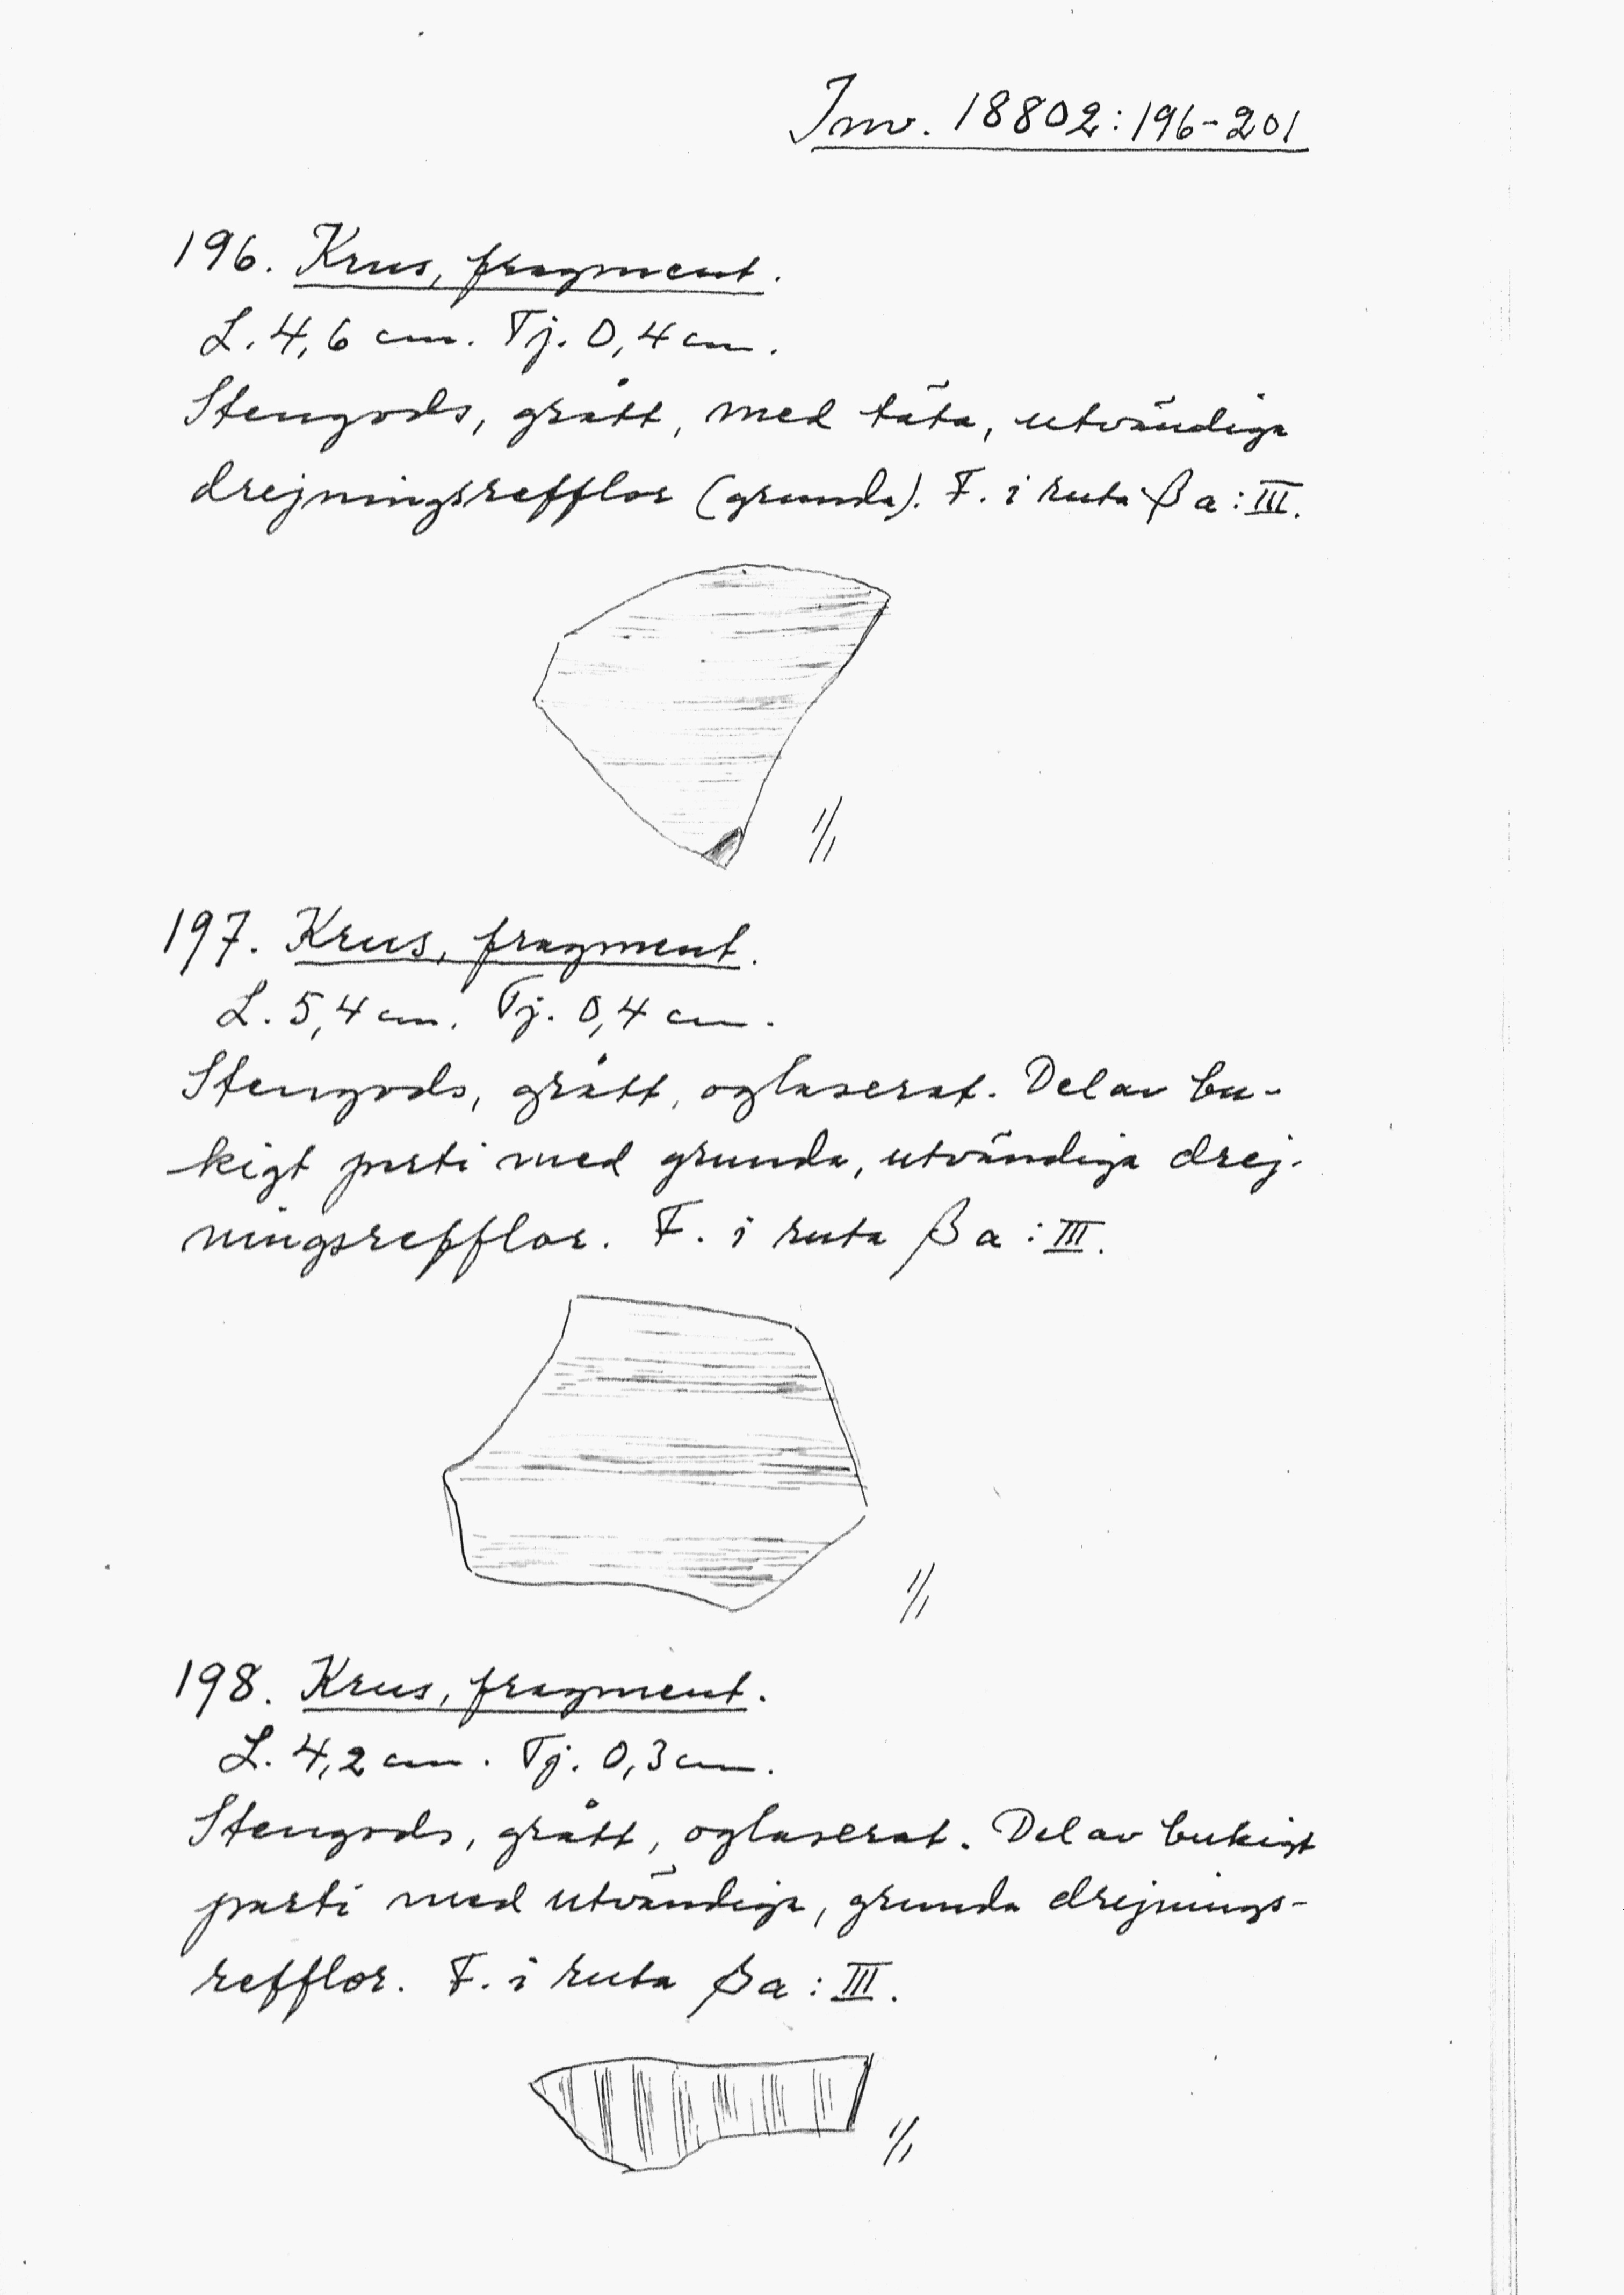 Inv. 18802:196-201
196. Krus, fragment.
L. 4,6 cm. Tj. 0,4 cm.
Stengods, grått, med täta, utvändiga
drejningsrefflor (grunda). F. i ruta β a : III.
1/1
197. Krus, fragment.
L. 5,4 cm. Tj. 0,4 cm.
Stengods, grått, oglaserat. Del av bu-
kigt parti med grunda, utvändiga drej-
ningsrefflor. F. i ruta β a : III.
1/1
198. Krus, fragment.
L. 4,2 cm. Tj. 0,3 cm.
Stengods, grått, oglaserat. Del av bukigt
parti med utvändiga, grunda drejnings-
refflor. F. i ruta β a : III.
1/1